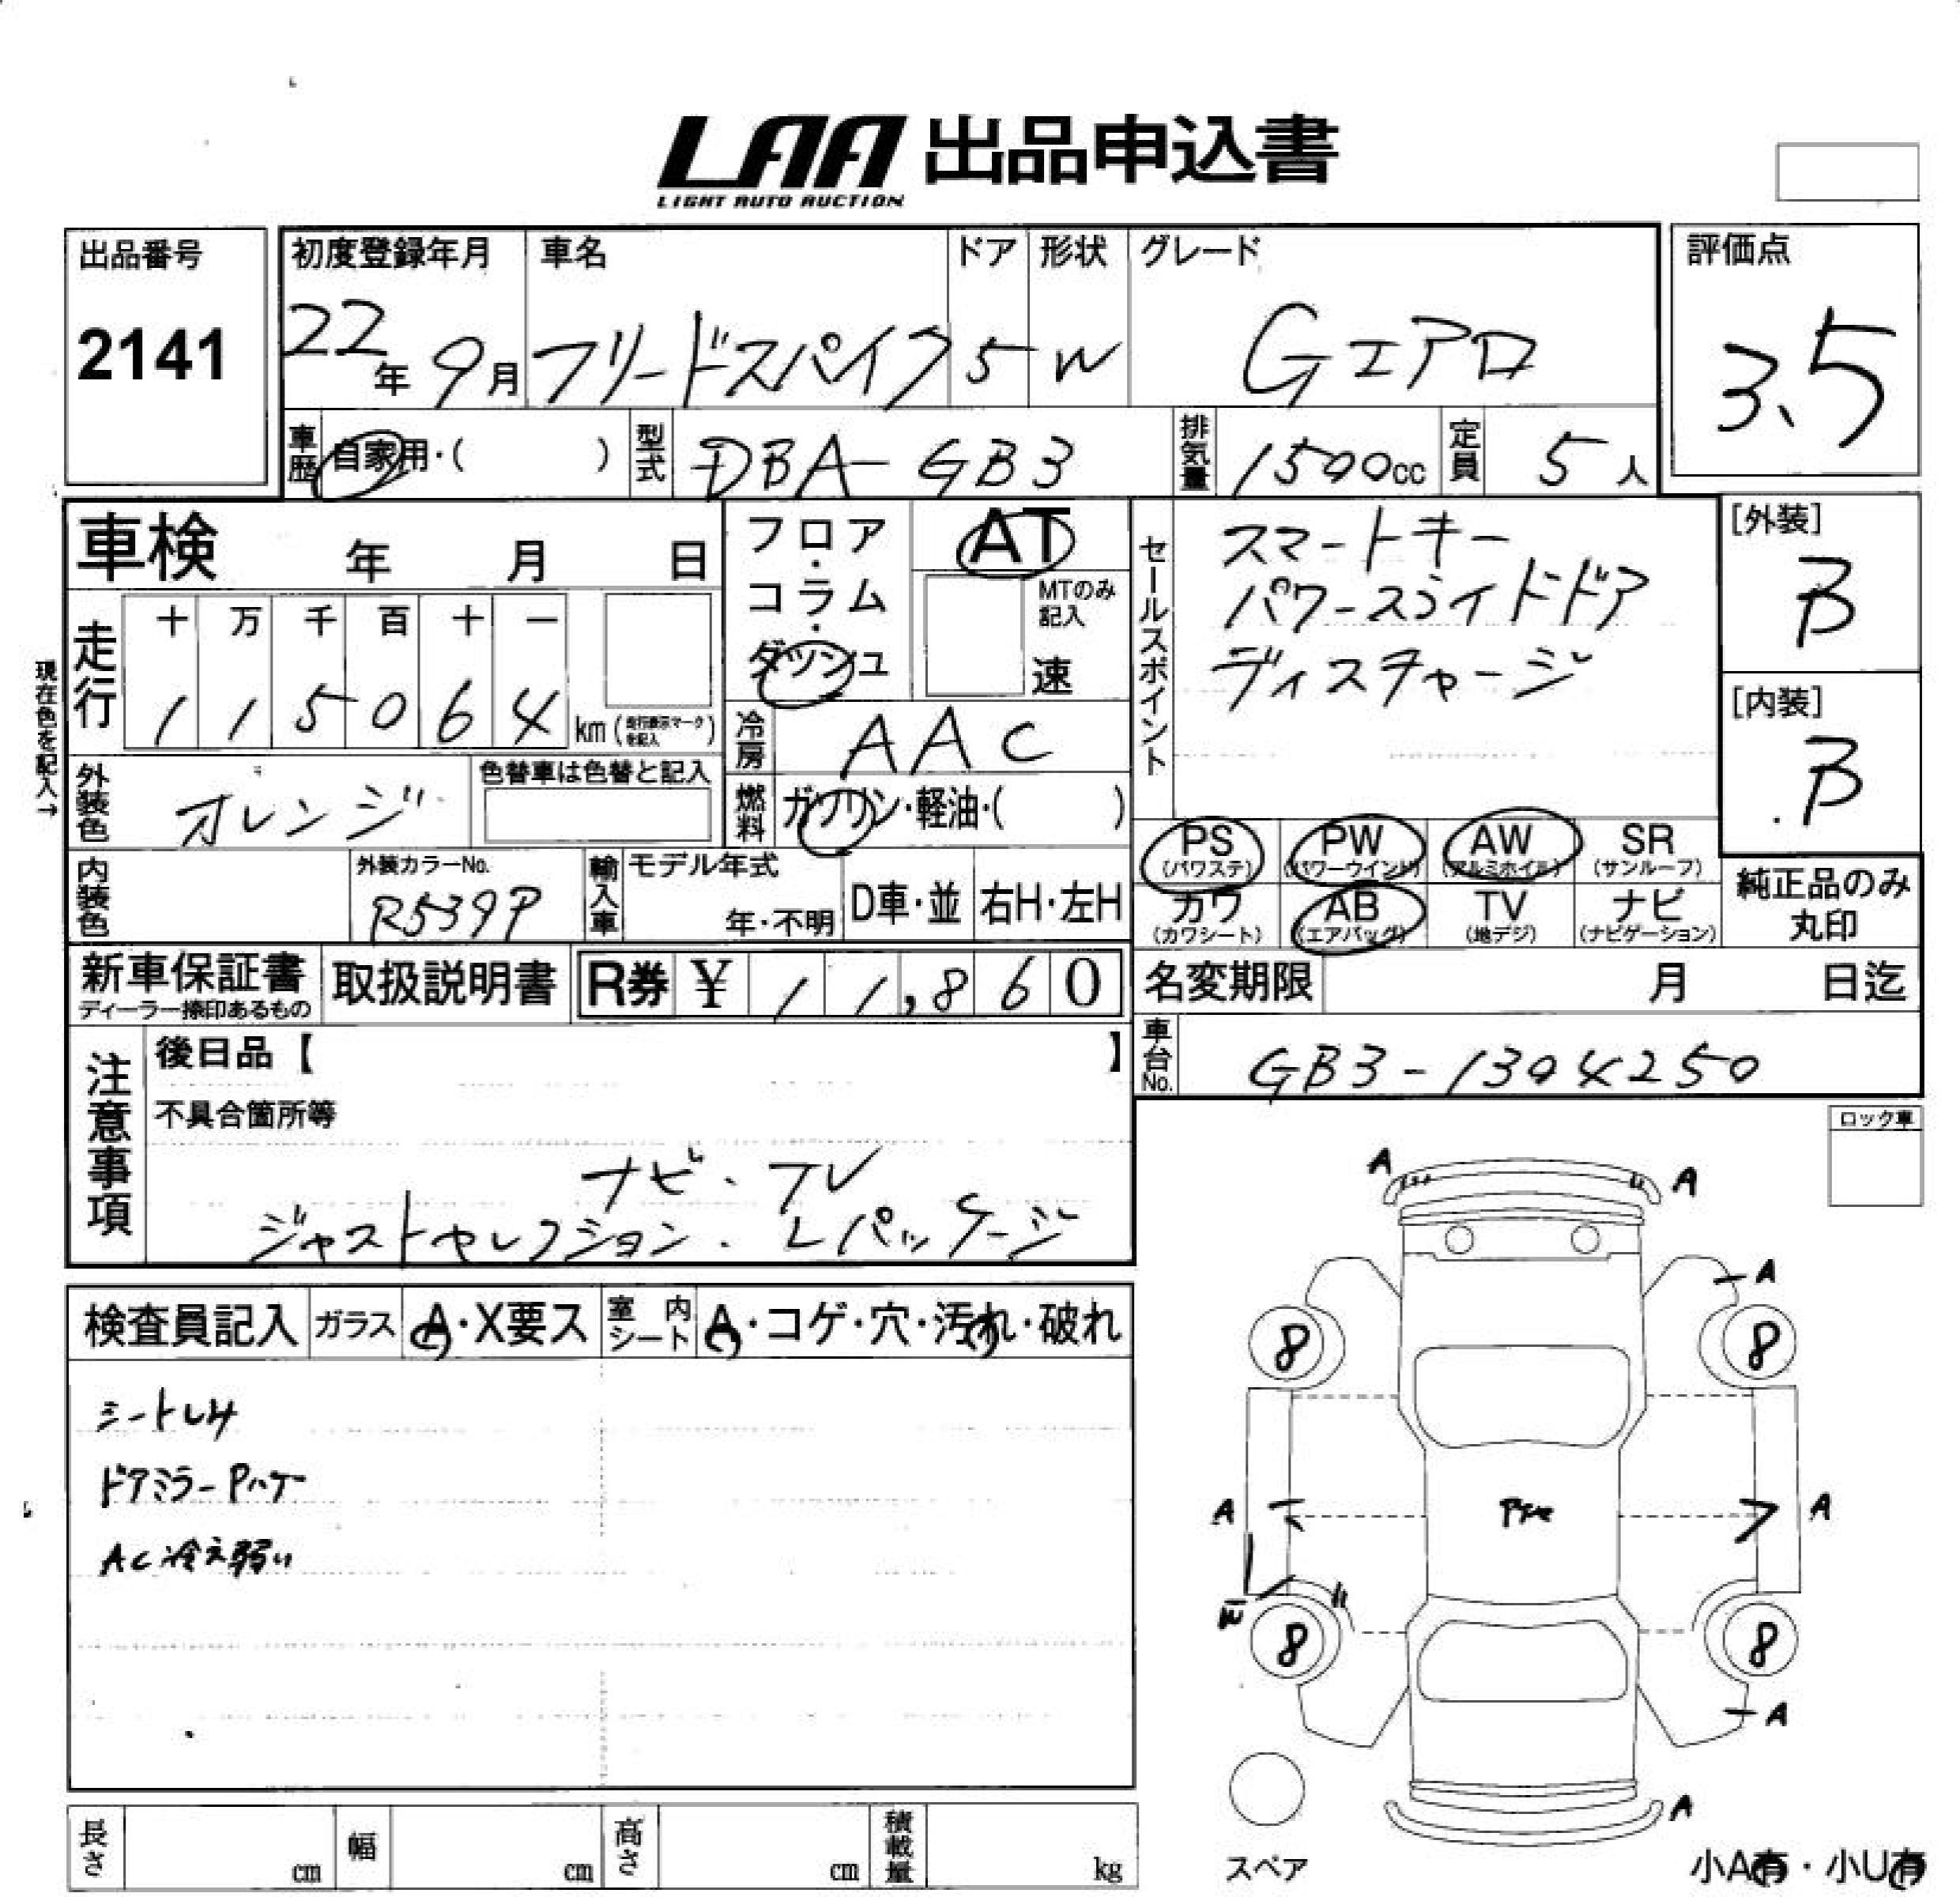 LAA 出品申込書
LIGHT AUTO AUCTION
出品番号
2141
初度登録年月
22年 9月
車名
フリードスパイク
ドア
5
形状
W
グレード
Gエアロ
評価点
3.5
車歴 自家用・( )
型式 DBA-GB3
排気量 1500cc
定員 5人
車検 年 月 日
フロア・コラム・ダッシュ
AT
MTのみ記入
速
セールスポイント
スマートキー
パワースライドドア
ディスチャージ
[外装]
B
[内装]
B
現在色を記入→
走行
十 万 千 百 十 一
1 1 5 0 6 4 km (走行表示マークを記入)
冷房 AAC
外装色 オレンジ
色替車は色替と記入
燃料 ガソリン・軽油・( )
PS (パワステ)
PW (パワーウインド)
AW (アルミホイール)
SR (サンルーフ)
カワ (カワシート)
AB (エアバッグ)
TV (地デジ)
ナビ (ナビゲーション)
純正品のみ丸印
内装色
外装カラーNo.
R539P
輸入車 モデル年式
年・不明
D車・並
右H・左H
新車保証書
ディーラー捺印あるもの
取扱説明書
R券 ¥ 11,860
名変期限 月 日迄
車台No. GB3-1304250
注意事項
後日品【 】
不具合箇所等
ナビ・TV
ジャストセレクション・Lパッケージ
ロック車
検査員記入
ガラス A・X要ス
室内シート A・コゲ・穴・汚れ・破れ
シートLカ
ドアミラーPハゲ
AC冷え弱い
A A
A
8 8
A A
8 8
A
A
スペア
小A有・小U有
長さ cm
幅 cm
高さ cm
積載量 kg